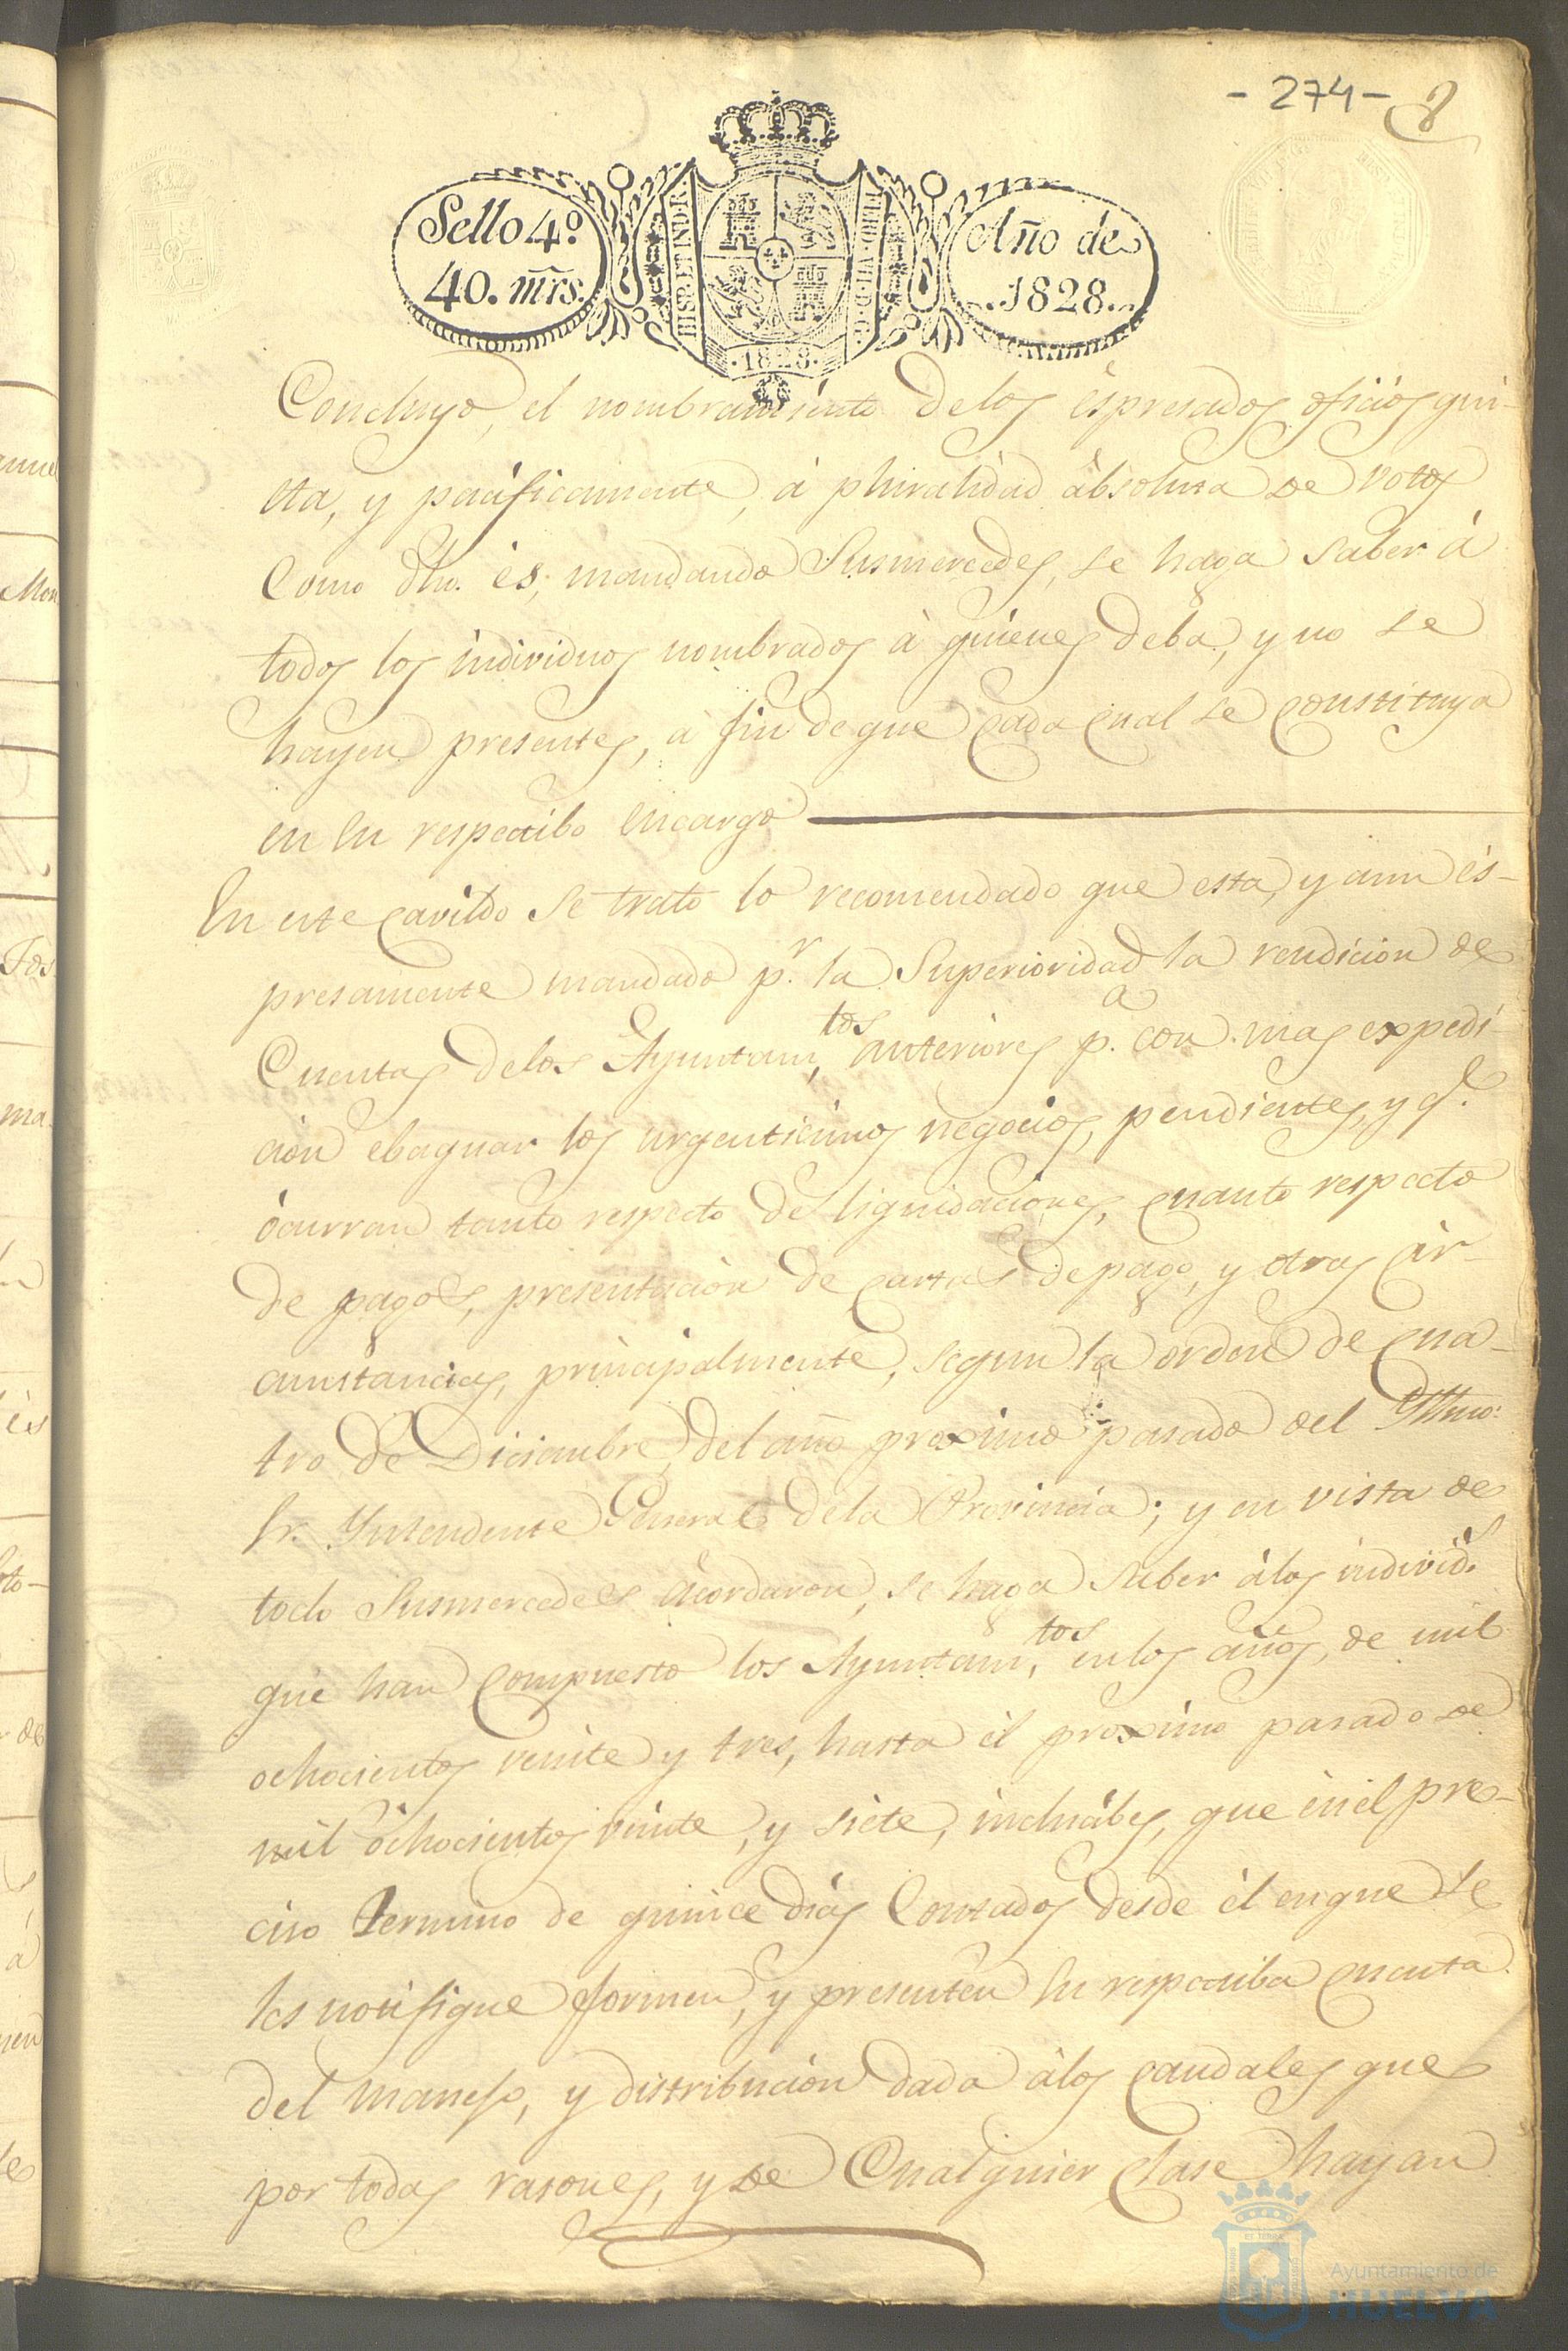 - 274 - 8
Sello 4º.
40. mrs.
HISP. ET IND. R.
FERD. VII. D. G.
.1828.
Año de
.1828.
Concluyo, el nombramiento delos éspresados oficiós qui-
eta, y pacificamente, á pluralidad ábsoluta de votos
Como dho. és; mandando Susmercedes, se haga saber á
todos los individuos nombrados á quienes deba, y no se
hayen presentes, a fin de que Cada Cual se Constituya
en su respectibo encargo
En este Cavildo se trato lo recomendado que esta, y aun és-
presamente mandado p.r la Superioridad la rendicion de
Cuentas delos Ayuntam.tos anterióres p.a con mas expedi-
cion ebaquar los urgenticimos negocios, pendientes, y q.e
ócurran tanto respecto de liquidaciones, Cuanto respecto
de pagos, presentacion de Cartas de pago, y otras Cir-
cunstancias, principalmente, segun la orden de Cua-
tro de Diciembre, del año proximo pasado del Yltmo.
Sr. Yntendente General dela Provincia; y en vista de
todo Susmercedes Acordaron, se haga saber álos individ.s
que han Compuesto los Ayuntam.tos enlos años, de mil
ochocientos veinte y tres, hasta él proximo pasado de
mil óchocientos veinte, y siete, inclucibes, que en él pre-
ciso termino de quince dias Contados desde él enque se
les notifique formen, y presenten su respectiba Cuenta
del manejo, y distribucion dada álos Caudales que
por todas rasones, y de Cualquier Clase hayan
Ayuntamiento de
HUELVA